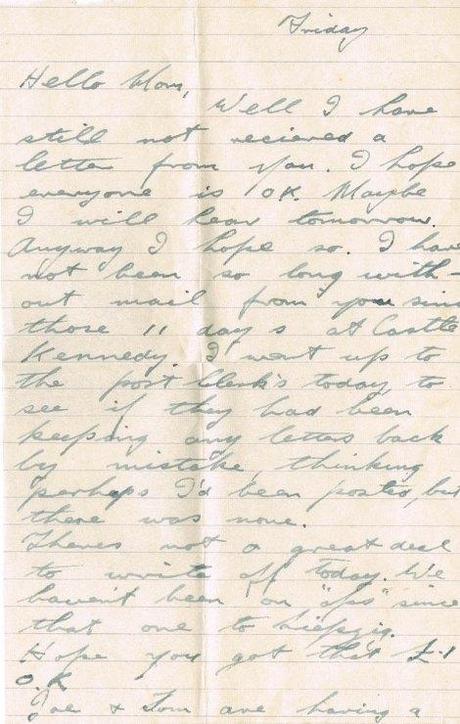 Friday
Hello Mom,
Well I have
still not recieved a
letter from you. I hope
everyone is OK. Maybe
I will hear tomorrow.
Anyway I hope so. I have
not been so long with-
out mail from you sinc
those 11 days at Castle
Kennedy. I went up to
the post Clerk's today to
see if they had been
keeping any letters back
by mistake, thinking
perhaps I'd been posted, but
there was none.
Theres not a great deal
to write off today. We
haven't been on "ops" since
that one to Liepzig.
Hope you got that £1
O.K
Joe & Tom are having a